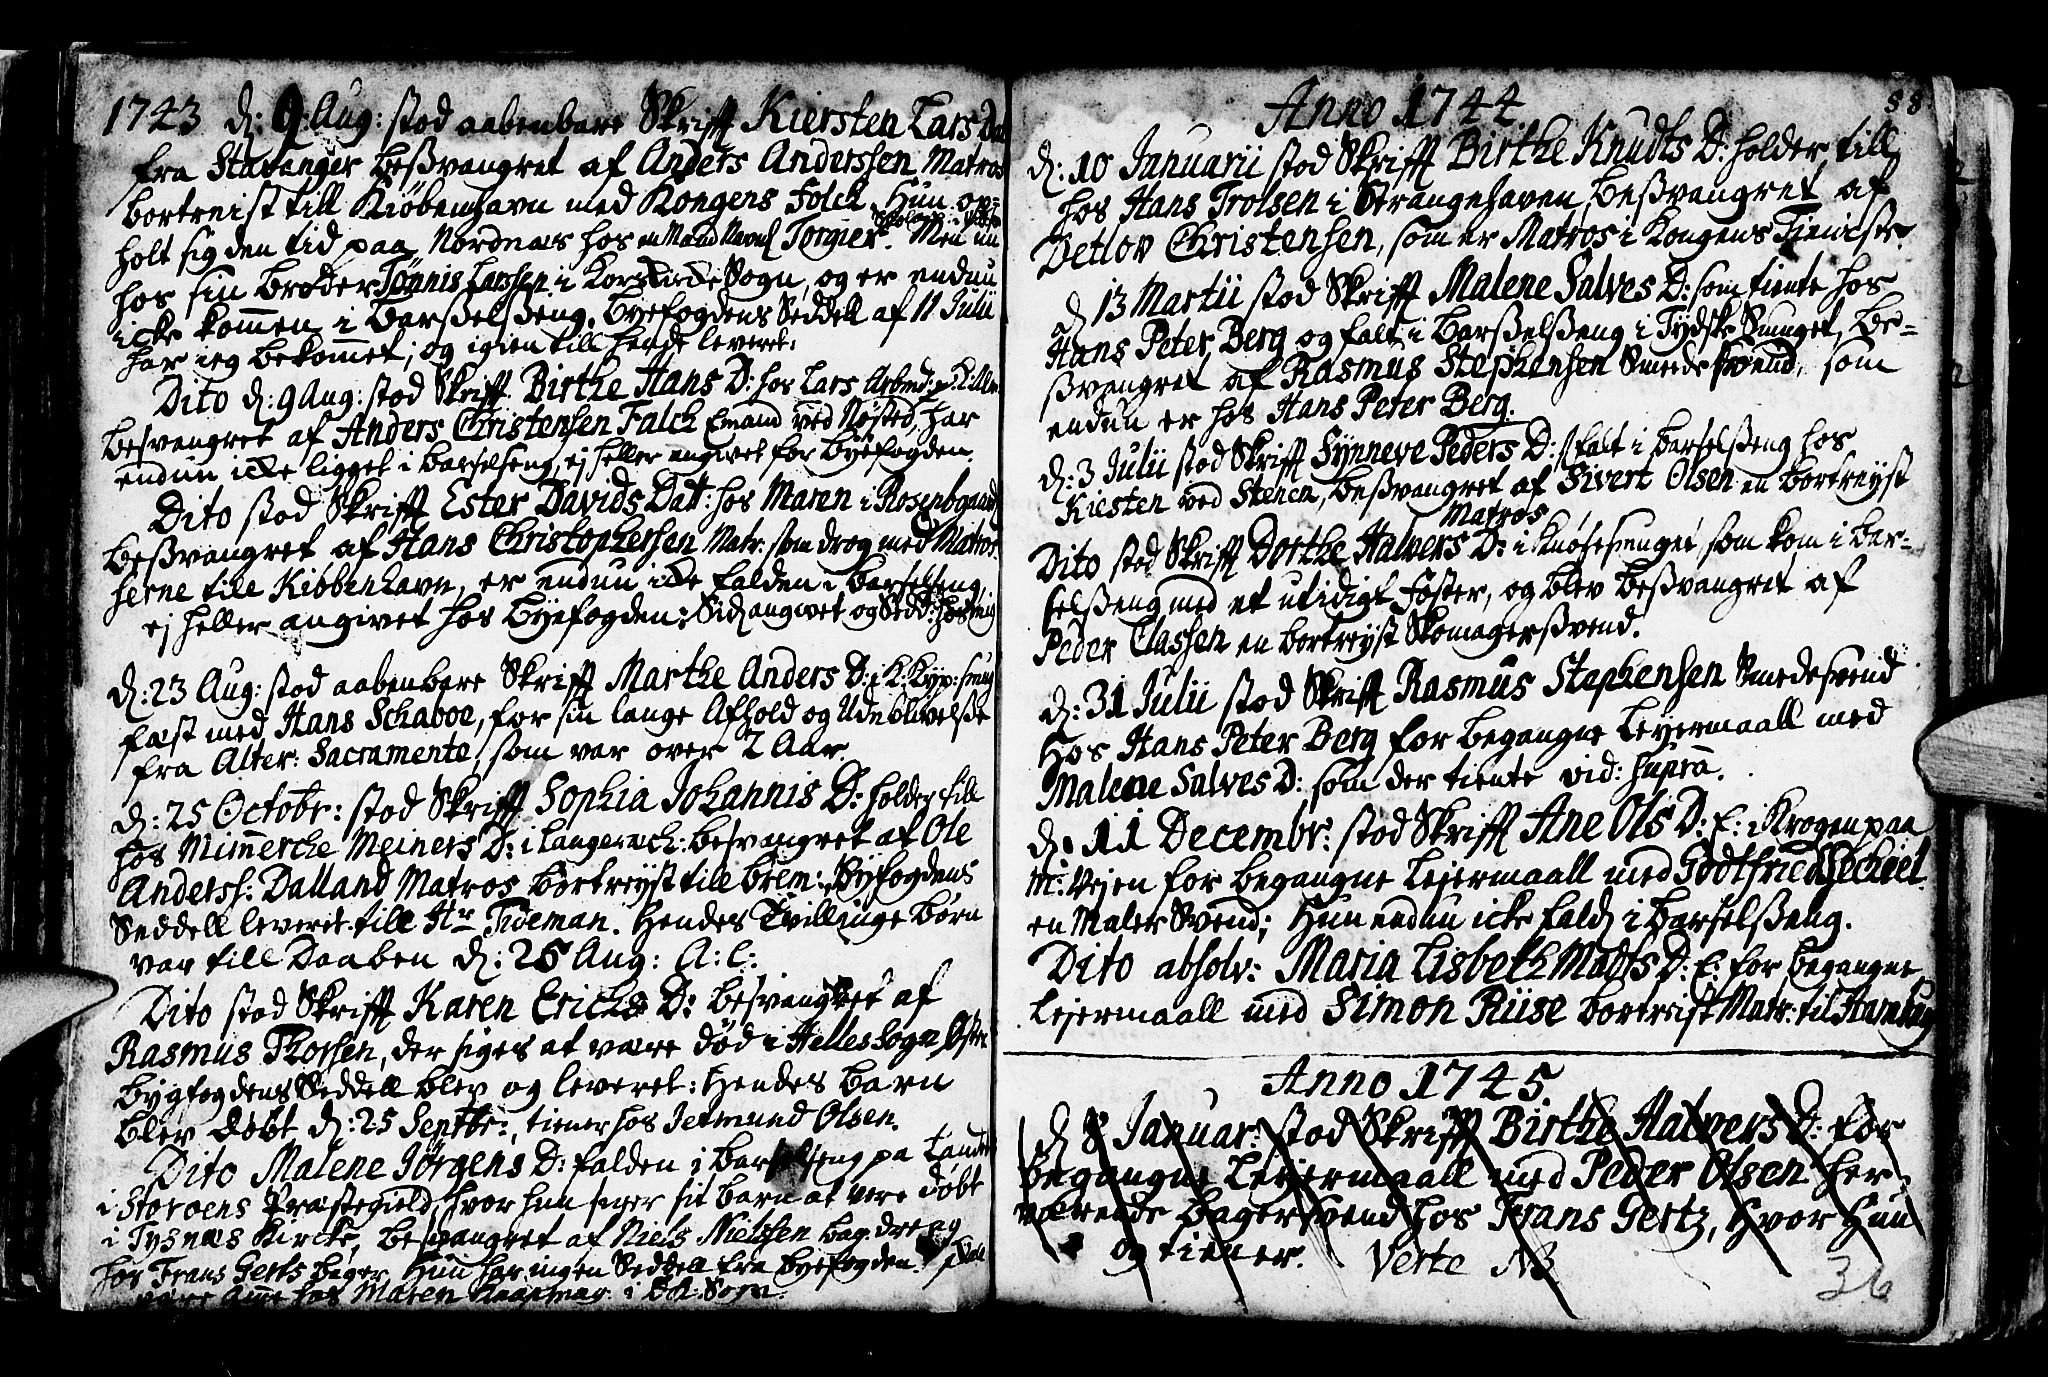 1743 d: 9 Aug: stod aabenbare Skrifft Kiersten Lars Dat
fra Stavanger besvangret af Anders Anderssen Matros
bortreist till Kiøbenhavn med Kongens Folck. Hun op-
holt sig den tid paa Nordnæs hos en Mand Navnl Torgier. Men nu
hos sin Broder Tønnis Larssen i Kors Sogn, og er endnu
icke kommen i Barsselseng. Byefogdens Seddell af 11 Julii
har ieg bekommet; og igien till hende leveret.
Dito d: 9 Aug: stod Skrifft Birthe Hans D: hos Lars
besvangret af Anders Christensen Falch Emand ved Nøsted, har
endnu icke ligget i barselseng, ej heller angivet for Byefogden.
Dito stod Skrifft Ester Davids Datt: hos Maren i Rosenbgaard
besvangret af Hans Christophersen Matr: som drog med Matros
serne till Kiøbenhavn, er endnu icke falden i barselseng,
ej heller angivet hos Byefogden: Sid angivet og Sedd: hos mig
d: 23 Aug: stod aabenbare Skrifft Marthe Anders D: i K:
fæst med Hans Schaboe, for sin lange Afhold og Udeblivelse
fra Alter: Sacramente, som var over 2 Aar.
d: 25 Octobr: stod Skrifft Sophia Johannis D: holder till
hos Mimmerche Meiners D: i besvangret af Ole
Anderss: Dalland Matros bortreyst till Brem: Byfogdens
Seddell leveret till Hr Tideman. Hendes Tvillinge børn
var till Daaben d: 25 Aug: A: C:
Dito stod Skrifft Karen Erichs D: besvangret af
Rasmus Thorsen, der siges at være død i Helles Sogn
Bygfogdens Seddell blev og leveret: Hendes Barn
blev døbt d: 25 Septbr:, tiener hos Jetmund Olsen.
Dito Malene Jørgens D: falden i Barselseng pa Landet
i Storoens Præstegield, hvor hun siger sit barn at være døbt
i Tysnæs Kircke, besvangret af Niels Nielssen bag dreng
hos Frans Gerts bager. Hun har ingen Seddell fra byefogden.
være Amme hos Maren
88
Anno 1744
d: 10 Januarii stod Skrifft Birthe Knudts D: holder till
hos Hans Trolsen i Strangehaven, besvangret af
Detlov Christensen, som er Matros i Kongens Tieniste.
d 13 Martii stod Skrifft Malene Salves D: som tiente hos
Hans Peter Berg og falt i Barsselseng i Tydske Smuget, be-
svangret af Rasmus Stephensen Smedesvend, som
endnu er hos Hans Peter Berg.
d: 3 Julii stod Skrifft Synneve Peders D: falt i barselseng hos
Kiesten ved Stenen, besvangret af Sivert Olsen en bortreyst
Matros
Dito stod Skrifft Dorthe Halvers D: i som kom i bar-
selseng med et utidigt Foster, og blev besvangret af
Peder Classen en bortreyst Skomagersvend.
d: 31 Julii stod Skrifft Rasmus Stephensen Smedesvend
hos Hans Peter Berg for begangne Leyermaall med
Malene Salves D: som der tiente vid: supra.
d. 11 Decembr: stod Skrifft Ane Ols D: E: i Krogen paa
for begangne Lejermaall med Godtfried
en Maler Svend; Hun endnu icke fald i Barselseng.
Dito absolv: Maria Lisbeth Matts D: E: for begangne
Lejermaall med Simon Riise bortreist Matr: til Hamburg
Anno 1745.
d 8 Januar: stod Skrifft Birthe Halvers D: for
begangne Lejermaall med Peder Olsen her-
værende bagersvend hos Frans Gertz, Hvor Hun
og tiener. Verte NB
36